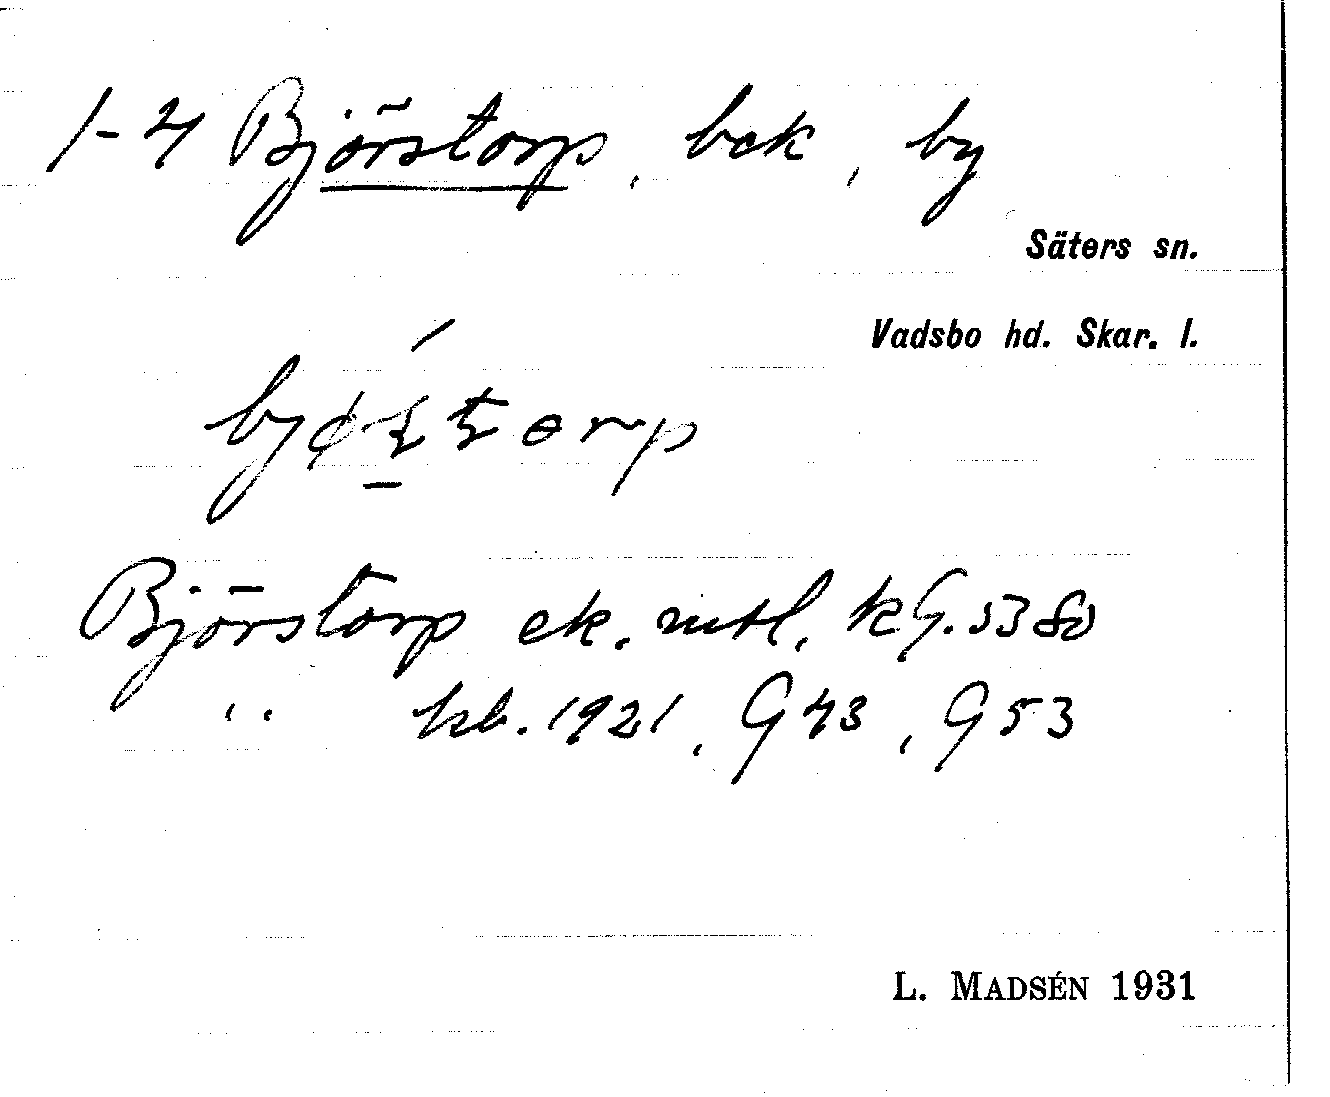 1-4 Björstorp, bek, by
Säters sn.
Vadsbo hd. Skar. l.
Björstorp ek. mtl. KG. 5380
" kb. 1921, G43, G53
L. MADSÉN 1931